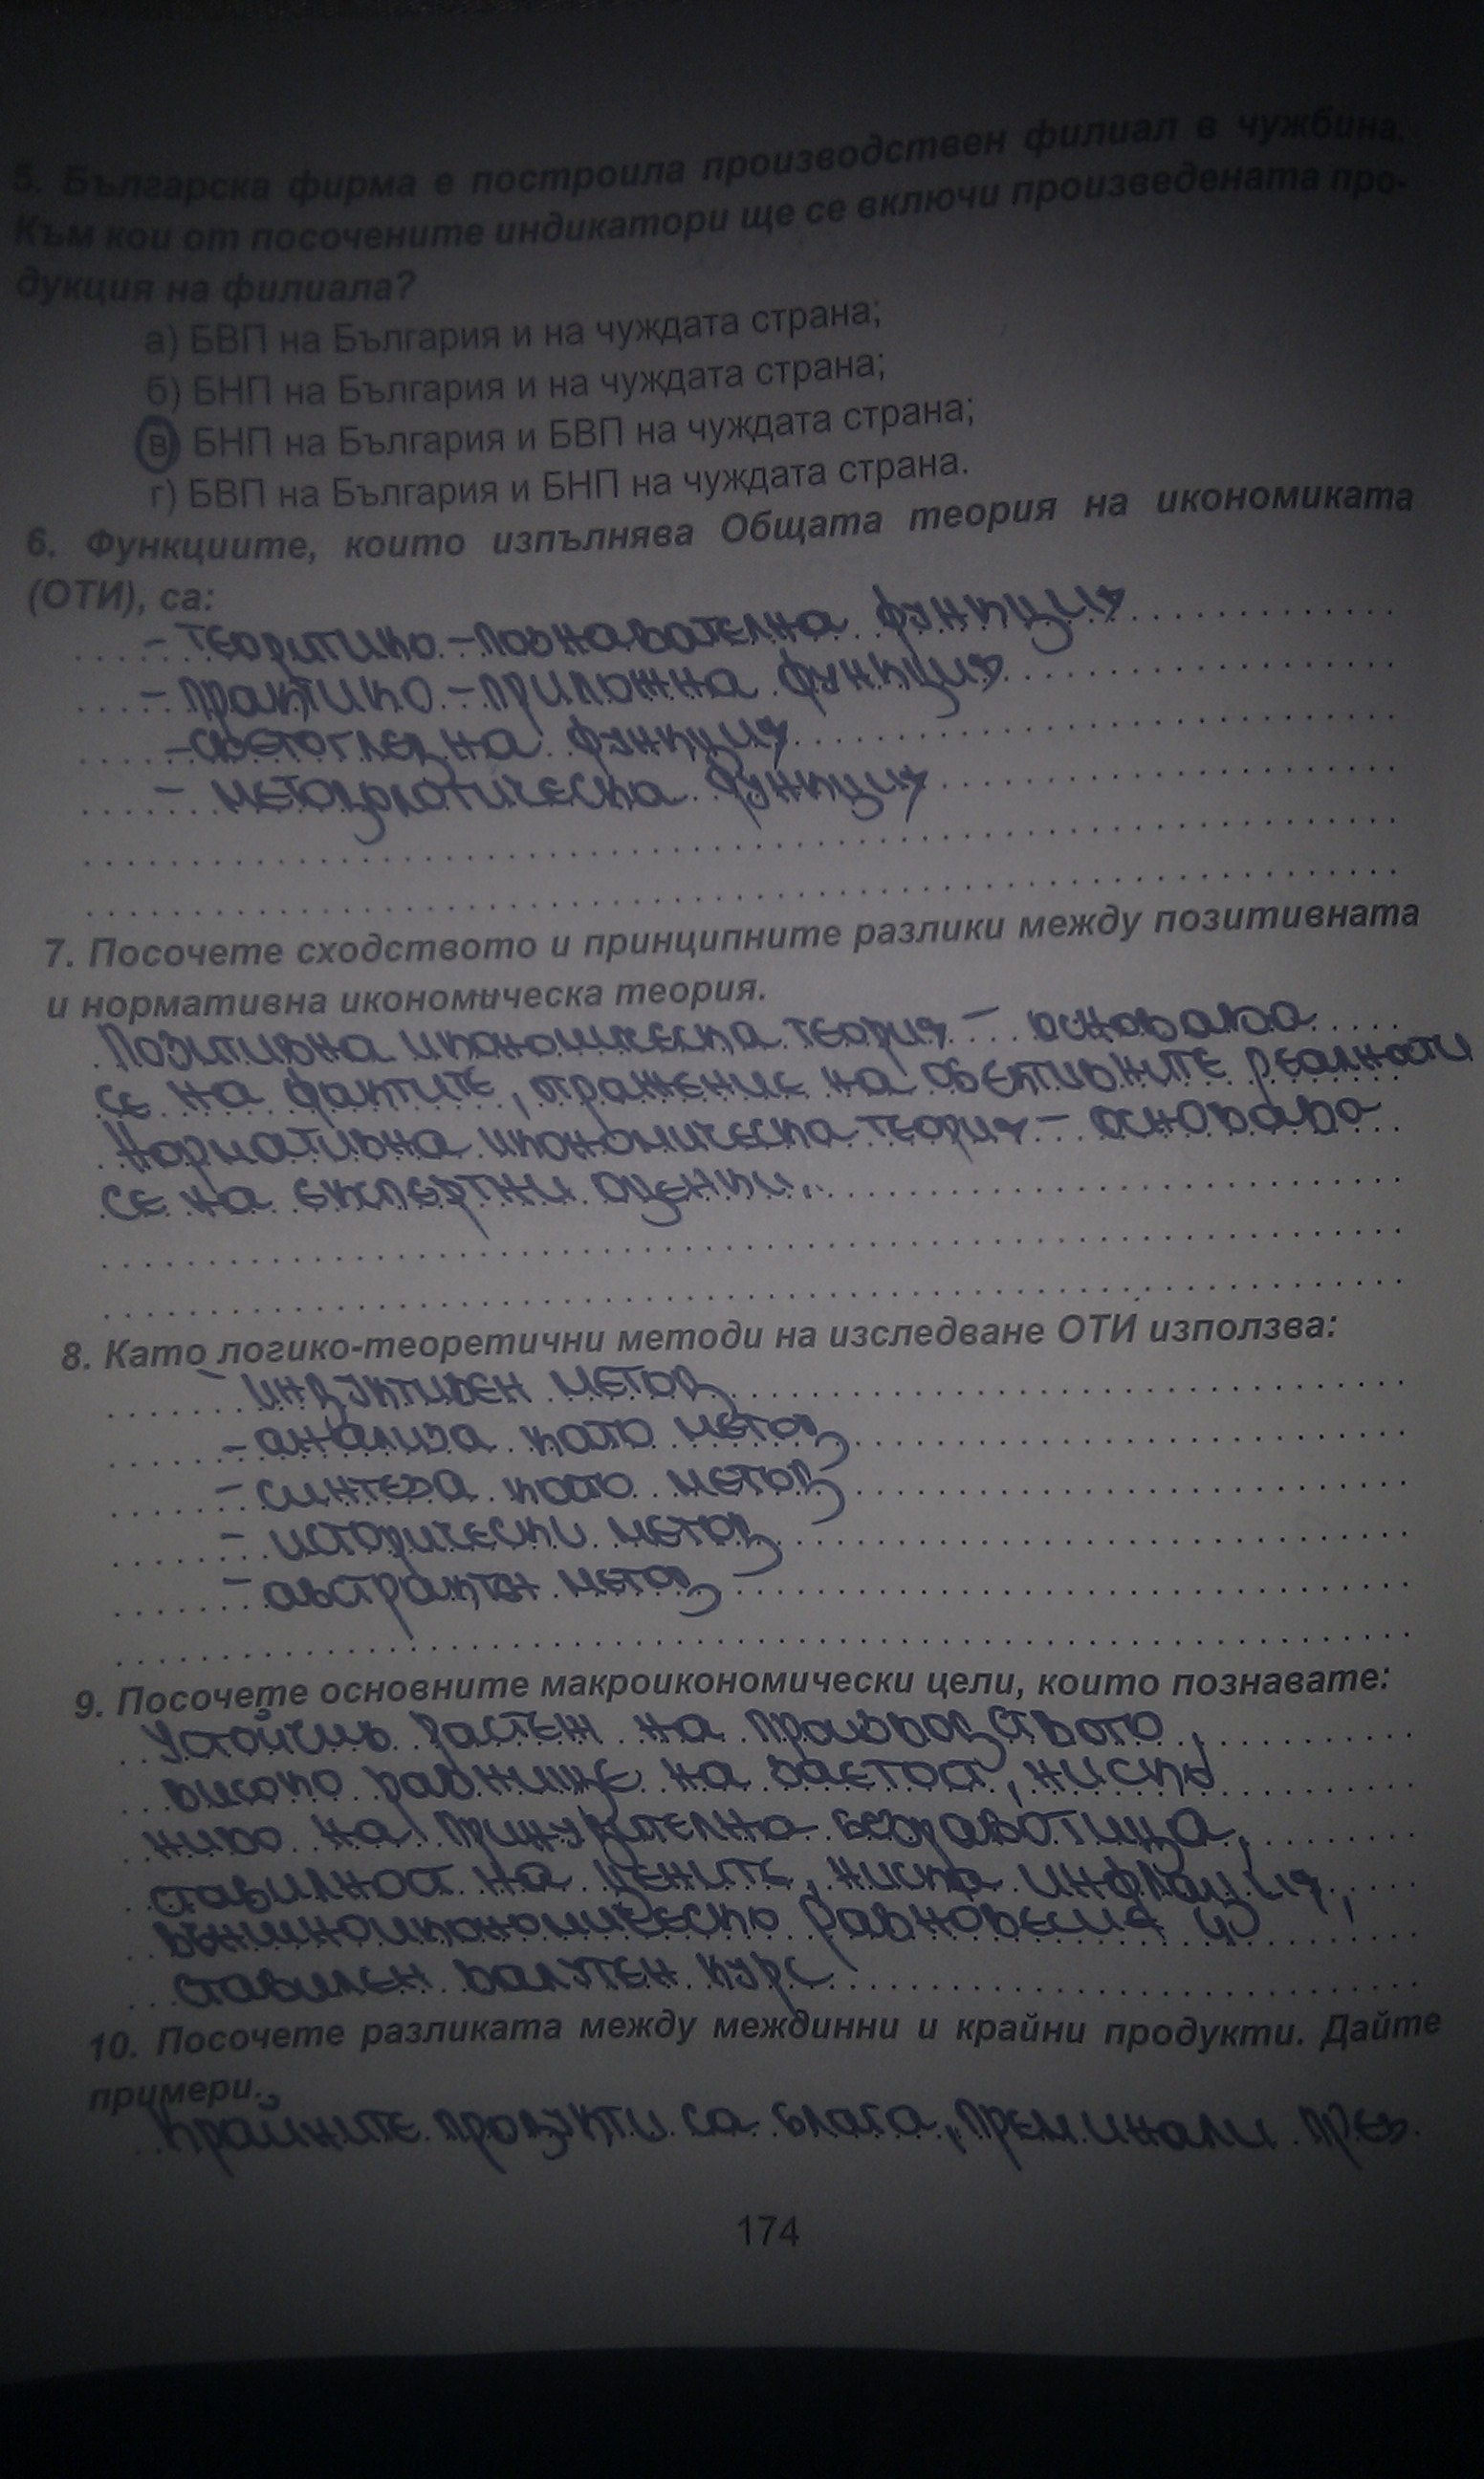 5. Българска фирма е построила производствен филиал в чужбина.
Към кои от посочените индикатори ще се включи произведената про-
дукция на филиала?
а) БВП на България и на чуждата страна;
б) БНП на България и на чуждата страна;
в) БНП на България и БВП на чуждата страна;
г) БВП на България и БНП на чуждата страна.
6. Функциите, които изпълнява Общата теория на икономиката
(ОТИ), са:
- теоритико - познавателна функция
- практико - приложна функция
- светогледна функция
- методологическа функция
7. Посочете сходството и принципните разлики между позитивната
и нормативна икономическа теория.
Позитивна икономическа теория - основава
се на фактите, отражение на обективните реалности
Нормативна икономическа теория - основава
се на експертни оценки.
8. Като логико-теоретични методи на изследване ОТИ използва:
- индуктивен метод
- анализа като метод
- синтеза като метод
- исторически метод
- абстрактен метод
9. Посочете основните макроикономически цели, които познавате:
Устойчив растеж на производството,
високо равнище на заетост, ниско
ниво на принудителна безработица,
стабилност на цените, ниска инфлация,
външноикономическо равновесие и
стабилен валутен курс
10. Посочете разликата между междинни и крайни продукти. Дайте
примери.
Крайните продукти са блага, преминали през
174